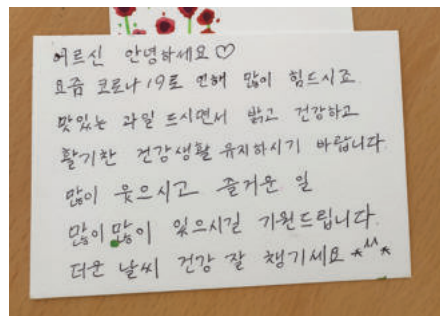 어르신 안녕하세요♡
요즘 코로나19로 인해 많이 힘드시죠
맛있는 과일 드시면서 밝고 건강하고
활기찬 건강생활 유지하시기 바랍니다
많이 웃으시고 즐거운 일
많이 많이 있으시길 기원드립니다.
더운 날씨 건강 잘 챙기세요 *^^*